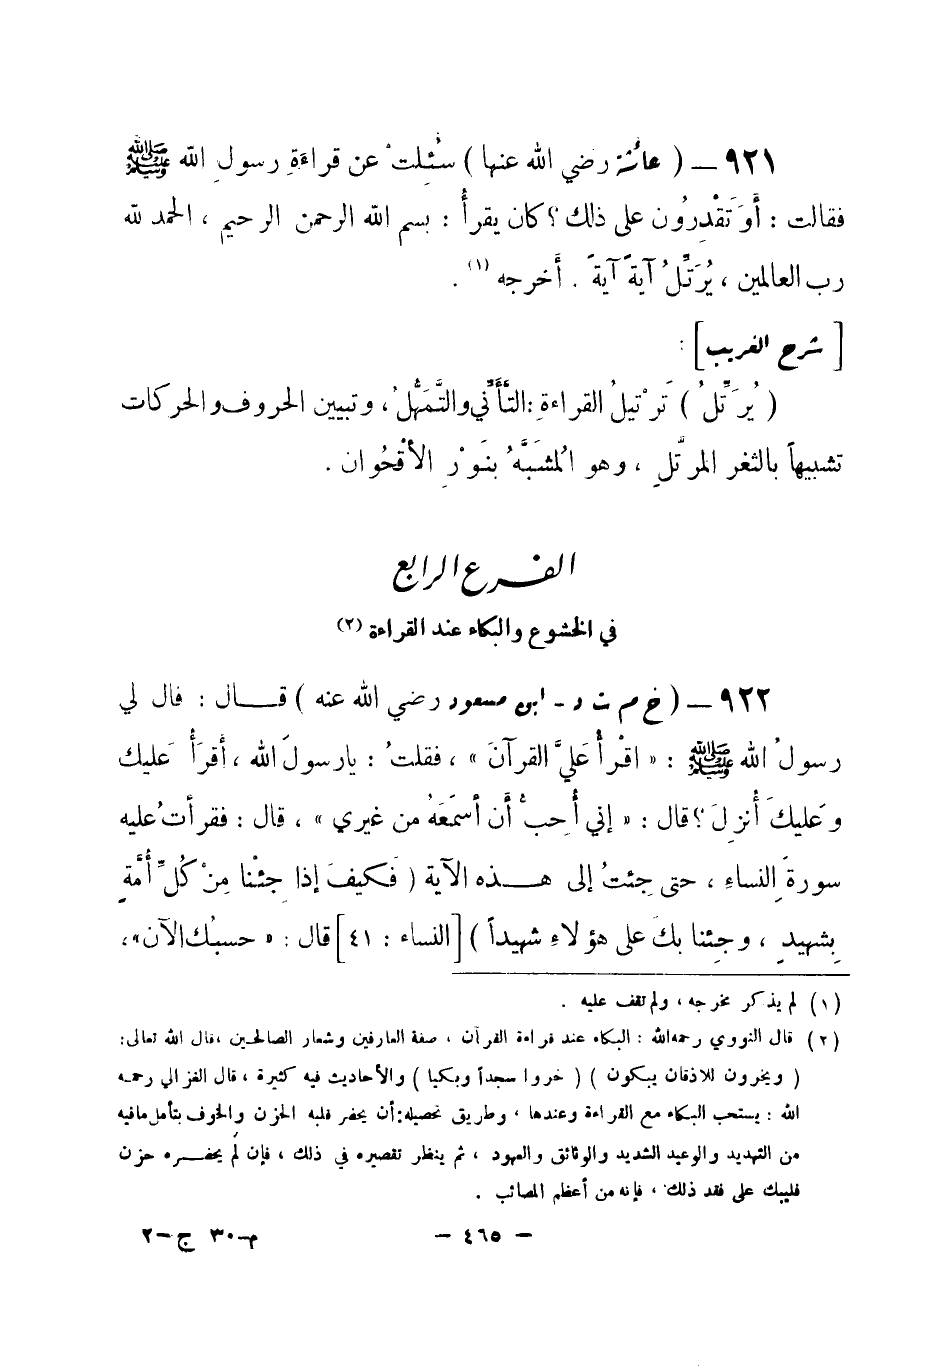 ٩٢١ – ( عائشة رضي الله عنها ) سُئِلتْ عن قراءَةِ رسولِ الله ﷺ
فقالت : أَوَ تَقْدِرُون على ذلك ؟ كان يقرأُ : بسم الله الرحمن الرحيم ، الحمد لله
رب العالمين ، يُرَتِّلُ آيةً آيةً . أَخرجه (١) .
[ شرح الغريب ] :
( يُرَتِّلُ ) تَرْتيلُ القراءةِ : التَّأَنِّي والتَّمَهُّلُ ، وتبيين الحروف والحركات
تشبيهاً بالثغر المرتَّلِ ، وهو المُشَبَّهُ بنَوْرِ الأُقْحُوان .
الفرع الرابع
في الخشوع والبكاء عند القراءة (٢)
٩٢٢ – ( خ م ت د - ابن مسعود رضي الله عنه ) قـــال : قال لي
رسولُ الله ﷺ : « اقْرأْ عَليَّ القرآنَ » ، فقلتُ : يارسولَ الله ، أَقرَأُ عَليك
وعَليكَ أُنزِلَ ؟ قال : « إني أُحِبُّ أَن أسمَعَهُ من غيري » ، قال : فقرأتُ عليه
سورةَ النساءِ ، حتى جئتُ إلى هـــذه الآية ( فَكيفَ إذا جئْنا مِنْ كُلِّ أُمَّةٍ
بِشهيدٍ ، وجِئنا بكَ على هؤلاءِ شهيداً ) [ النساء : ٤١ ] قال : « حسبُك الآن » ،
(١) لم يذكر مخرجه ، ولم نقف عليه .
(٢) قال النووي رحمه الله : البكاء عند قراءة القرآن ، صفة العارفين وشعار الصالحين ، قال الله تعالى :
( ويخرون للاذقان يبكون ) ( خروا سجداً وبكيا ) والأحاديث فيه كثيرة ، قال الغزالي رحمه
الله : يستحب البكاء مع القراءة وعندها ، وطريق تحصيله : أن يحضر قلبه الحزن والخوف بتأمل مافيه
من التهديد والوعيد الشديد والوثائق والعهود ، ثم ينظر تقصيره في ذلك ، فإن لم يحضـــره حزن
فليبك على فقد ذلك ، فإنه من أعظم المصائب .
– ٤٦٥ – م–٣٠ ج–٢